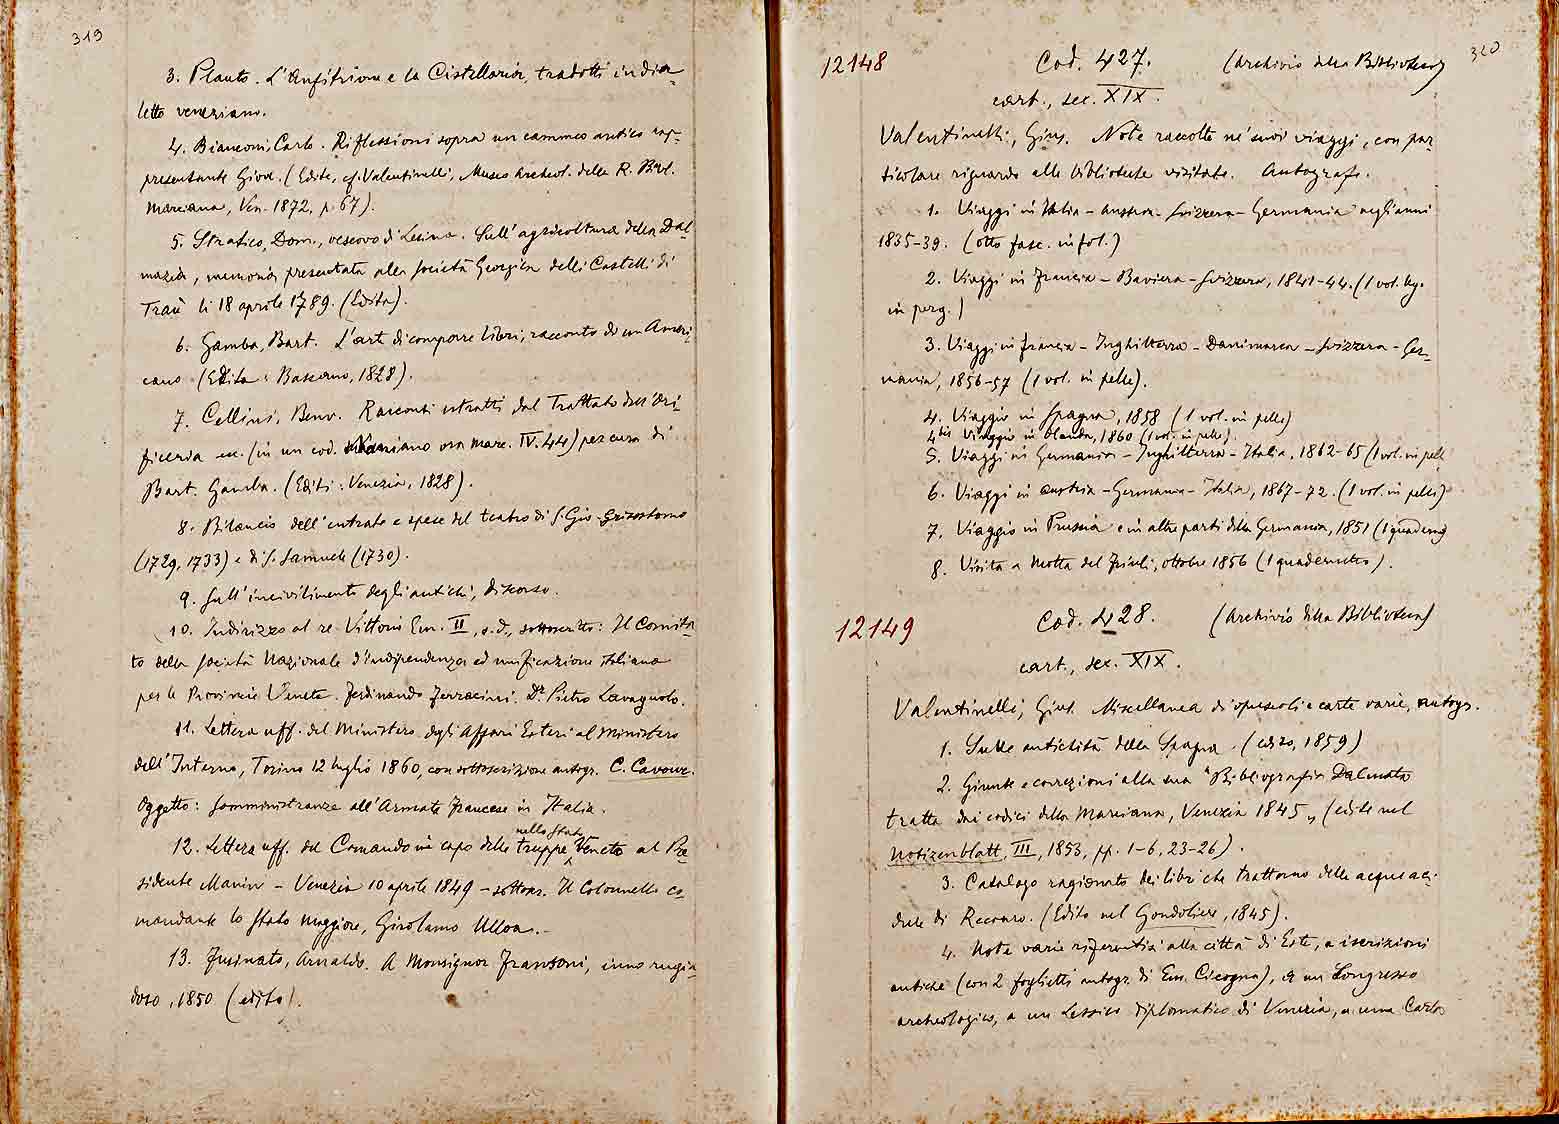 319
3. Plauto. L'Anfitrione e la Cistellaria, tradotti in dia-
letto veneziano.
4. Bianconi, Carlo. Riflessioni sopra un cammeo antico rap-
presentante Giove. (Edite, cf. Valentinelli, Museo Archeol. della R. Bibl.
Marciana, Ven. 1872, p. 67).
5. Stratico, Dom., vescovo di Lesina. Sull'agricoltura della Dal-
mazia, memoria presentata alla Società Georgica delli Castelli di
Traù li 18 aprile 1789. (Edita).
6. Gamba, Bart. L'arte di comporre libri, racconto di un Ameri-
cano. (Edita: Bassano, 1828).
7. Cellini, Benv. Racconti estratti dal Trattato dell'Ori-
ficeria ec. (in un cod. Naniano ora Marc. IV. 44) per cura di
Bart. Gamba. (Editi: Venezia, 1828).
8. Bilancio dell'entrate e spese del teatro di S. Gio. Grisostomo
(1729, 1733) e di S. Samuele (1730).
9. Sull'incivilimento degli antichi, discorso.
10. Indirizzo al re Vittorio Em. II, s.d., sottoscritto: Il Comita-
to della Società Nazionale d'indipendenza ed unificazione italiana
per le Provincie Venete. Ferdinando Ferracini. Dr. Pietro Lavagnolo.
11. Lettera uff. del Ministero degli Affari Esteri al Ministero
dell'Interno, Torino 12 luglio 1860, con sottoscrizione autogr. C. Cavour.
Oggetto: Somministranze all'Armata Francese in Italia.
nello Stato
12. Lettera uff. del Comando in capo delle truppe Veneto al Pre-
sidente Manin - Venezia 10 aprile 1849 - sottoscr. Il Colonnello co-
mandante lo Stato Maggiore, Girolamo Ulloa.-
13. Fusinato, Arnaldo. A Monsignor Fransoni, inno rugia-
doso, 1850 (edito).
320
12148 Cod. 427. (Archivio della Biblioteca)
cart., sec. XIX.
Valentinelli, Gius. Note raccolte ne' suoi viaggi, con par-
ticolare riguardo alle biblioteche visitate. Autografo.
1. Viaggi in Italia - Austria - Svizzera - Germania negli anni
1835-39. (otto fasc. in fol.)
2. Viaggi in Francia - Baviera - Svizzera, 1841-44. (1 vol. leg.
in perg.)
3. Viaggi in Francia - Inghilterra - Danimarca - Svizzera - Ger-
mania, 1856-57 (1 vol. in pelle).
4. Viaggio in Spagna, 1858 (1 vol. in pelle)
4bis Viaggio in Olanda, 1860 (1 vol. in pelle).
5. Viaggi in Germania - Inghilterra - Italia, 1862-65 (1 vol. in pelle
6. Viaggi in Austria - Germania - Italia, 1867-72. (1 vol. in pelle)
7. Viaggio in Prussia e in altre parti della Germania, 1851 (1 quaderno)
8. Visita a Motta del Friuli, ottobre 1856 (1 quadernetto).
12149 Cod. 428. (Archivio della Biblioteca)
cart., sec. XIX.
Valentinelli, Gius. Miscellanea di opuscoli e carte varie, autogr.
1. Sulle antichità della Spagna. (1859)
2. Giunte e correzioni alla sua "Bibliografia Dalmata
tratta dai codici della Marciana, Venezia 1845„ (edite nel
Notizenblatt, III, 1853, pp. 1-6, 23-26).
3. Catalogo ragionato dei libri che trattano delle acque aci-
dule di Recoaro. (Edito nel Gondoliere, 1845).
4. Note varie riferentisi alla città di Este, a iscrizioni
antiche (con 2 foglietti autogr. di Em. Cicogna), a un Congresso
archeologico, a un Lessico diplomatico di Venezia, a una Carta